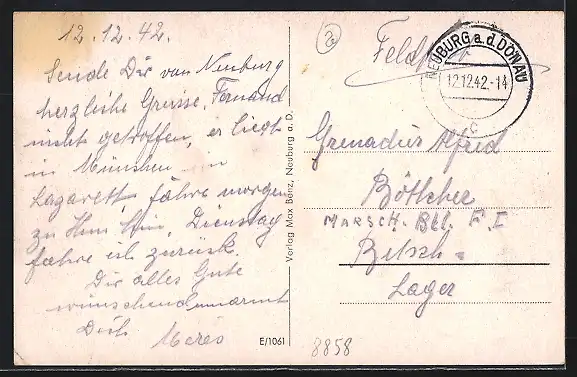 12.12.42.
Sende Dir von Neuburg
herzliche Grüsse, Fernand
nicht getroffen, er liegt
in München im
Lazarett, fahre morgen
zu Ihm hin, Dienstag
fahre ich zurück.
Dir alles Gute
wünschend umarmt
Dich
Verlag Max Benz, Neuburg a. D.
E/1061
Feldpost
NEUBURG a.d. DONAU
12.12.42.-14
c
Grenadier Alfred
Böttcher
MARSCH. Btl. F. I
Bitsch =
Lager
8858